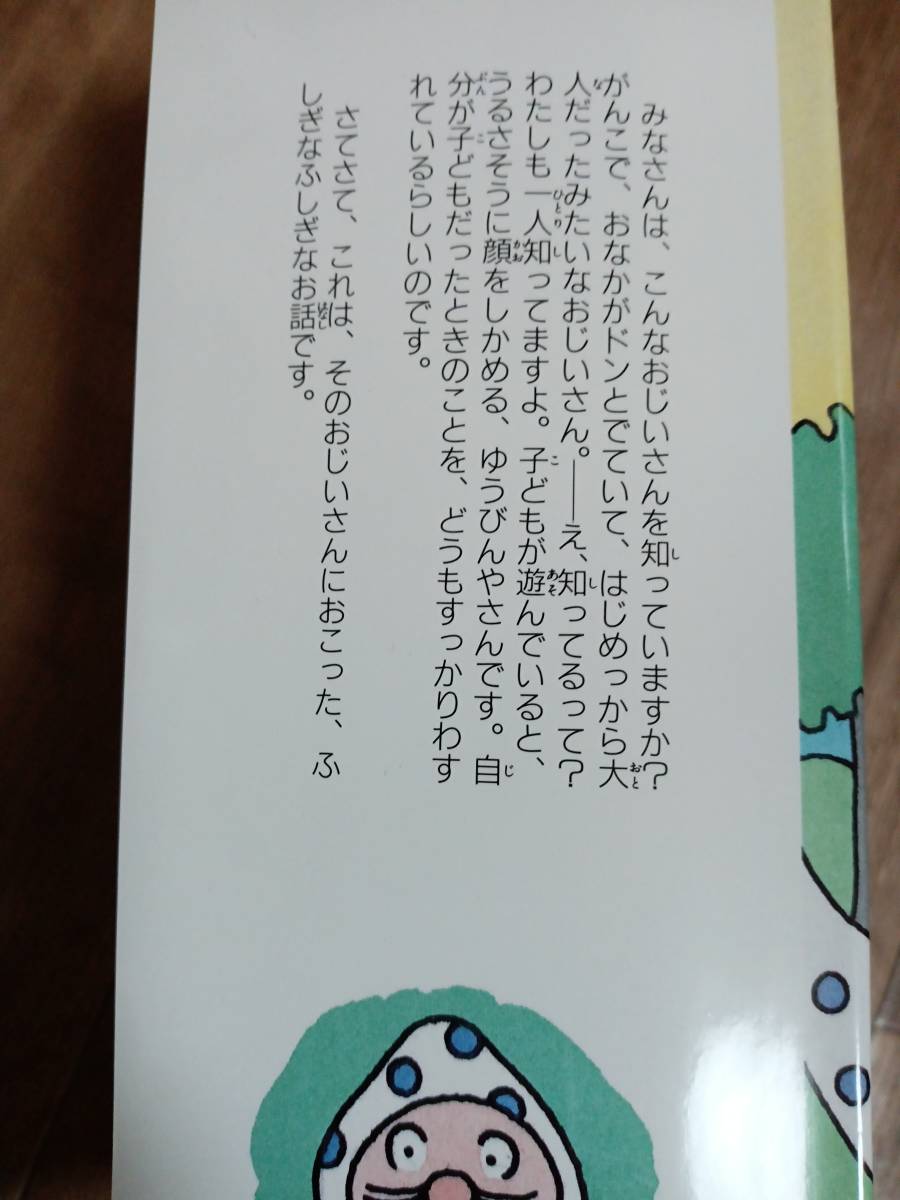 みなさんは、こんなおじいさんを知っていますか?
がんこで、おなかがドンとでていて、はじめっから大
人だったみたいなおじいさん。――え、知ってるって?
わたしも一人知ってますよ。子どもが遊んでいると、
うるさそうに顔をしかめる、ゆうびんやさんです。自
分が子どもだったときのことを、どうもすっかりわす
れているらしいのです。
さてさて、これは、そのおじいさんにおこった、ふ
しぎなふしぎなお話です。